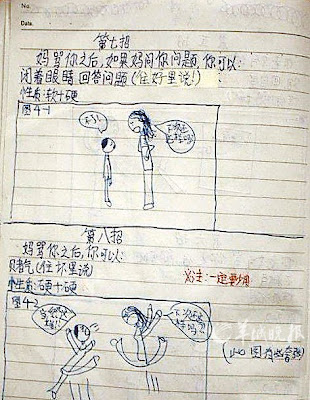 No.
Date
第七招
妈骂你之后,如果妈问你问题,你可以:
闭着眼睛回答问题(往好里说!)
性质:软+硬
图4-1
不了!
下次还
第八招
妈骂你之后,你可以:
(往坏里说)
性质:硬+硬
注:一定要
图4-2
下次还
羊城晚报
(此图有些夸张)